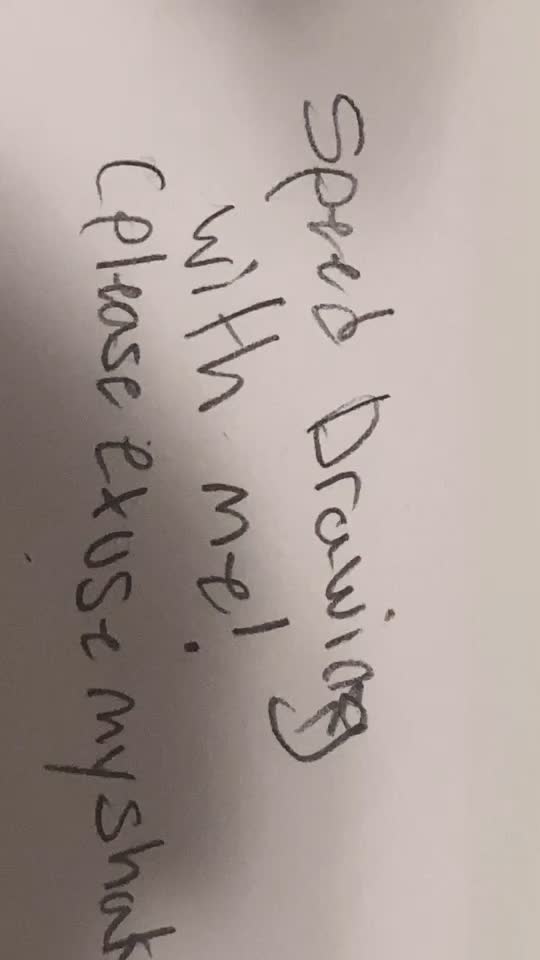 Speed Drawing
with me!
(please exuse my shak